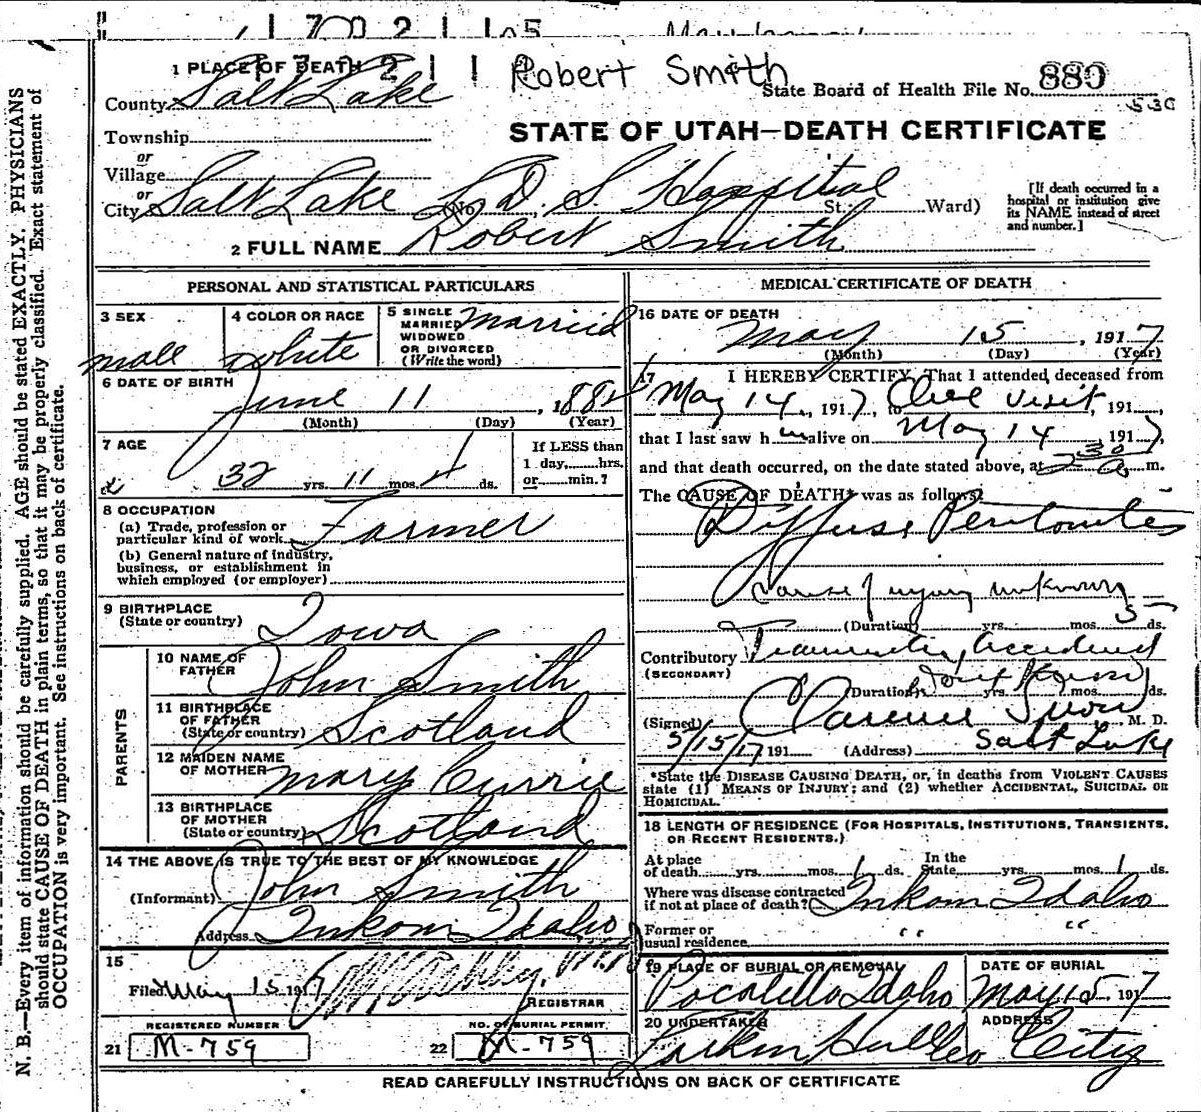 1 PLACE OF DEATH
Robert Smith
State Board of Health File No. 880
530
County Salt Lake
STATE OF UTAH—DEATH CERTIFICATE
Township
or
Village
or
City Salt Lake (No. L. D. S. Hospital St.; Ward)
[If death occurred in a hospital or institution give its NAME instead of street and number.]
2 FULL NAME Robert Smith
PERSONAL AND STATISTICAL PARTICULARS
3 SEX male
4 COLOR OR RACE white
5 SINGLE MARRIED WIDOWED OR DIVORCED (Write the word) Married
6 DATE OF BIRTH
June 11, 188
(Month) (Day) (Year)
7 AGE
32 yrs. 11 mos. 4 ds.
If LESS than 1 day, hrs. or min.?
8 OCCUPATION
(a) Trade, profession or particular kind of work Farmer
(b) General nature of industry, business, or establishment in which employed (or employer)
9 BIRTHPLACE (State or country) Iowa
PARENTS
10 NAME OF FATHER John Smith
11 BIRTHPLACE OF FATHER (State or country) Scotland
12 MAIDEN NAME OF MOTHER Mary Currie
13 BIRTHPLACE OF MOTHER (State or country) Scotland
14 THE ABOVE IS TRUE TO THE BEST OF MY KNOWLEDGE
(Informant) John Smith
Address Inkom Idaho
15
Filed May 15 1917
REGISTRAR
REGISTERED NUMBER
21 M-759
NO. OF BURIAL PERMIT
22 M-759
MEDICAL CERTIFICATE OF DEATH
16 DATE OF DEATH
May 15, 1917
(Month) (Day) (Year)
17 I HEREBY CERTIFY, That I attended deceased from
May 14, 1917, to One visit, 191
that I last saw him alive on May 14, 1917,
and that death occurred, on the date stated above, at 2 30 a m.
The CAUSE OF DEATH* was as follows:
Diffuse Peritonitis
Cause of injury unknown
(Duration) yrs. mos. 5 ds.
Contributory (SECONDARY) Traumatic, Accident
(Duration) Dont Know yrs. mos. ds.
(Signed) Clarence Snow M. D.
5/15/17 191 (Address) Salt Lake
*State the DISEASE CAUSING DEATH, or, in deaths from VIOLENT CAUSES
state (1) MEANS OF INJURY; and (2) whether ACCIDENTAL, SUICIDAL OR
HOMICIDAL.
18 LENGTH OF RESIDENCE (FOR HOSPITALS, INSTITUTIONS, TRANSIENTS, OR RECENT RESIDENTS.)
At place of death yrs. mos. 1 ds. In the State yrs. mos. 1 ds.
Where was disease contracted if not at place of death? Inkom Idaho
Former or usual residence " "
19 PLACE OF BURIAL OR REMOVAL Pocatello Idaho
DATE OF BURIAL May 15, 1917
20 UNDERTAKER Larkin Hull Co
ADDRESS City
READ CAREFULLY INSTRUCTIONS ON BACK OF CERTIFICATE
N. B.—Every item of information should be carefully supplied. AGE should be stated EXACTLY. PHYSICIANS
should state CAUSE OF DEATH in plain terms, so that it may be properly classified. Exact statement of
OCCUPATION is very important. See instructions on back of certificate.